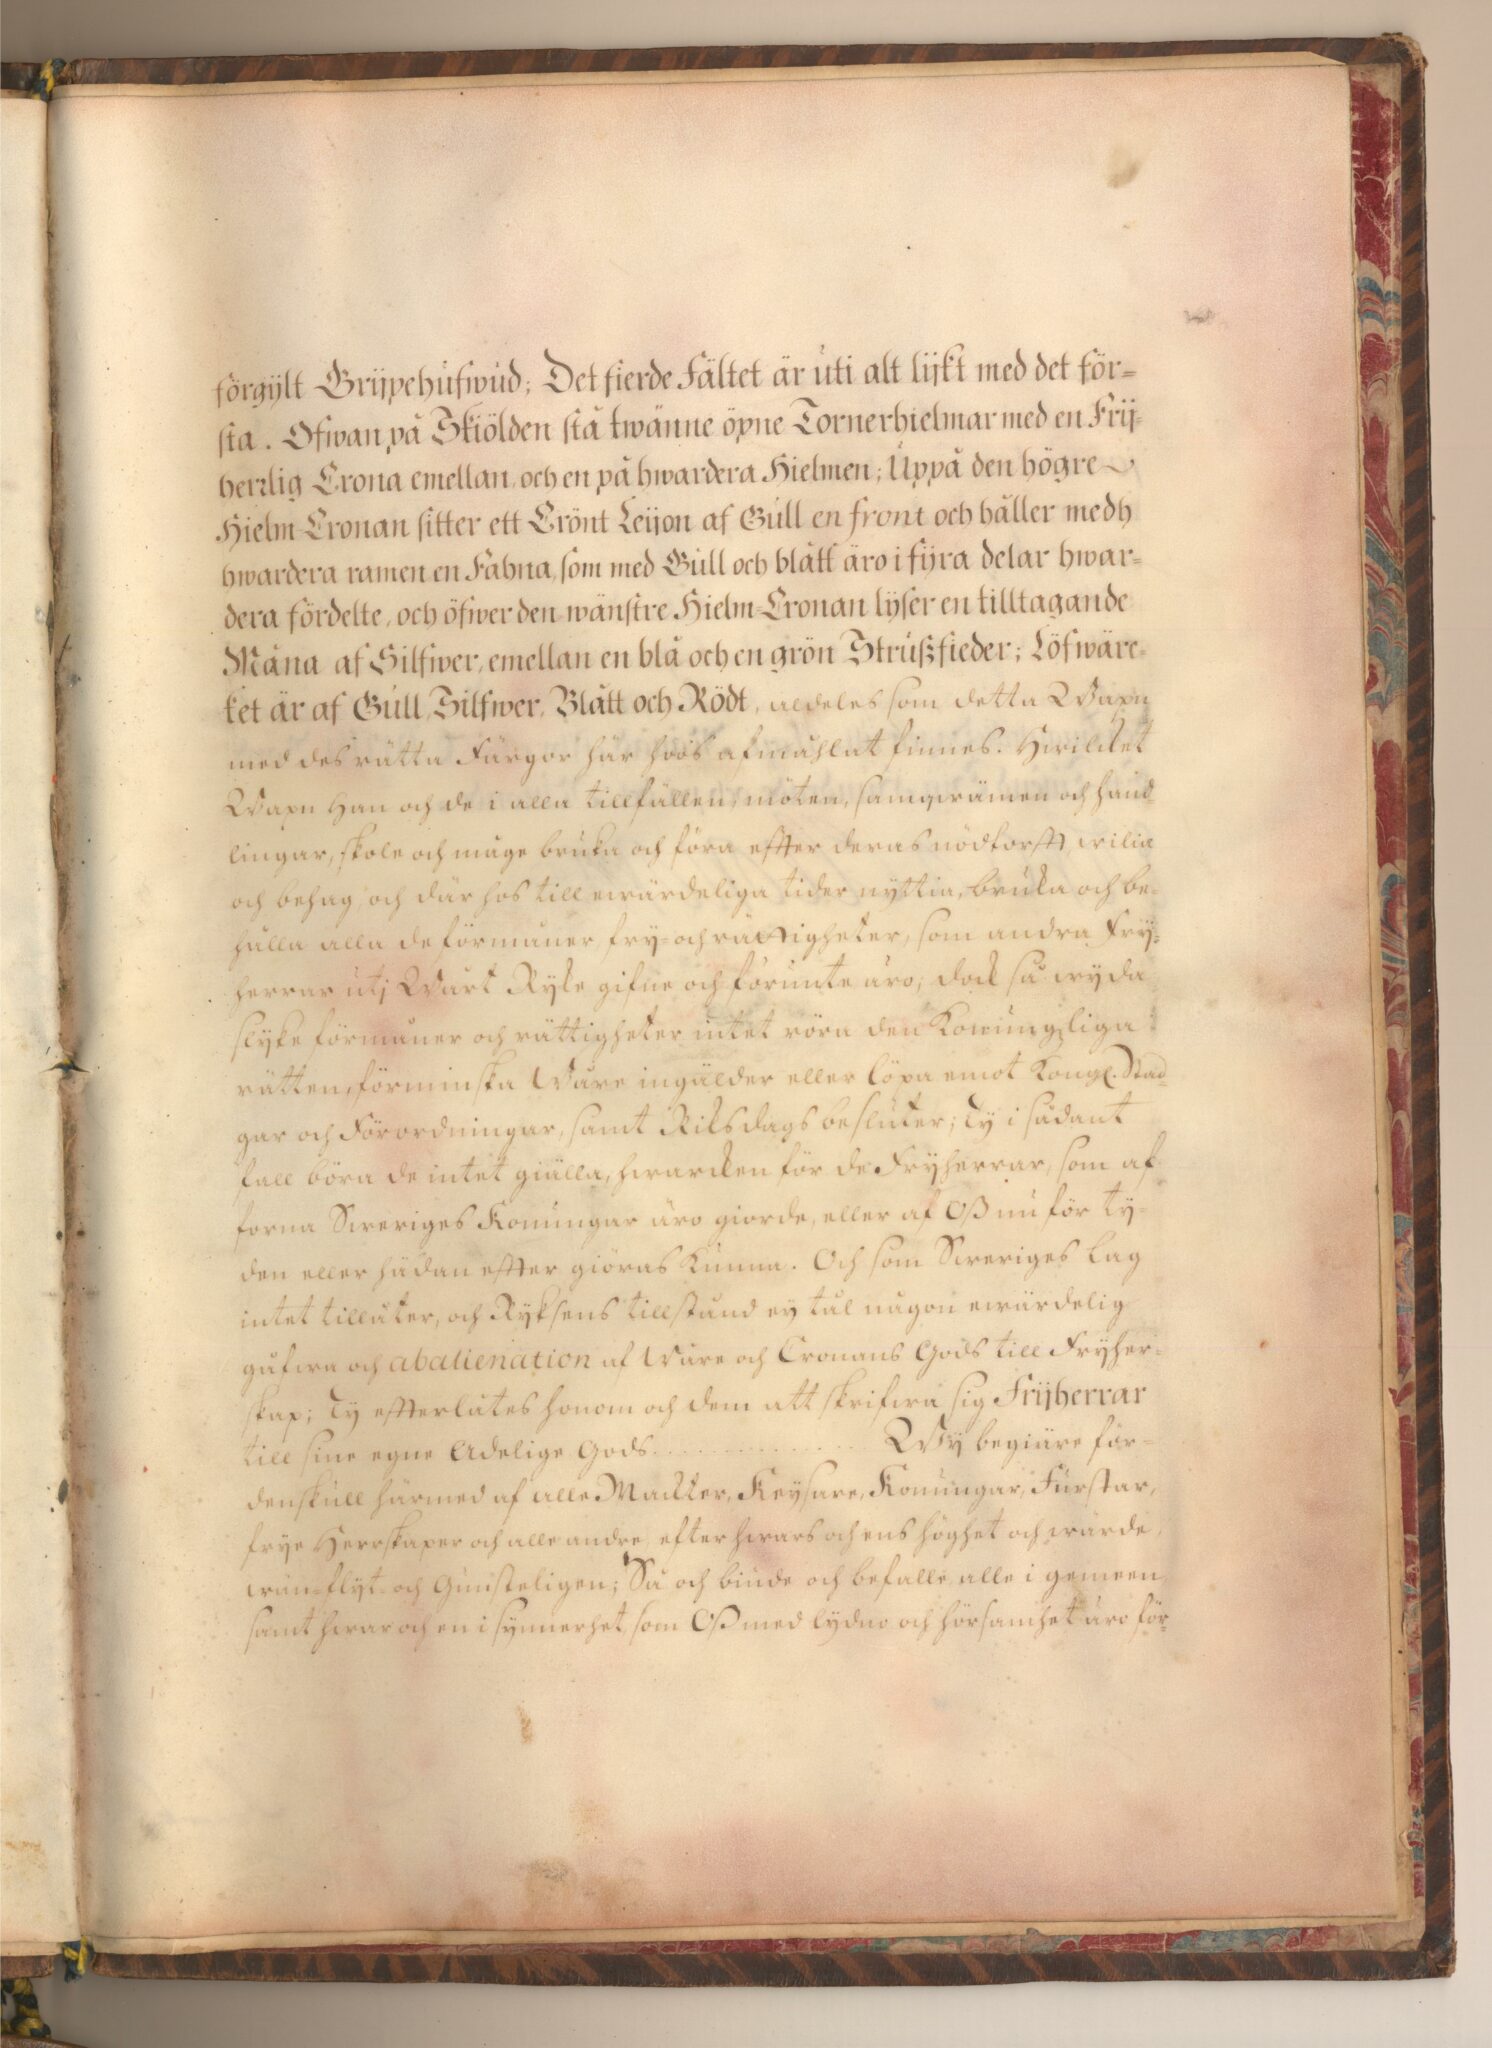 förgÿlt Grijpehufwud; Det fierde Fältet är uti alt lijkt med det för=
sta. Ofwan på Skiölden stå twänne öpne Tornerhielmar med en Frij=
herrlig Crona emellan, och en på hwardera Hielmen; Uppå den högre
Hielm-Cronan sitter ett Crönt Leijon af Gull en front och håller medh
hwardera ramen en Fahna, som med Gull och blått äro i fÿra delar hwar=
dera fördelte, och öfwer den wänstre Hielm-Cronan lÿser en tilltagande
Måna af Silfwer, emellan en blå och en grön Strußfieder; Löfwärc=
ket är af Gull, Silfwer, Blått och Rödt, aldeles som detta Wapn
med des rätta Färgor här hoos afmåhlat finnes. Hwilcket
Wapn Han och de i alla tillfällen, möten, samqwämen och hand=
lingar, skole och måge bruka och föra effter deras nödtorfft, wilia
och behag, och där hos till ewärdeliga tider nyttia, bruka och be=
hålla alla de förmåner, fry= och rättigheter, som andra Fry=
herrar utj Wårt Ryke gifne och förunte äro; dock så wyda
slyke förmåner och rättigheter intet röra den Konungzliga
rätten, förminska Wåre ingälder eller löpa emot Kongl. Stad=
gar och Förordningar, samt Riksdags besluter; Ty i sådant
fall böra de intet giälla, hwarcken för de Fryherrar, som af
forna Sweriges Konungar äro giorde, eller af Oß nu för ty=
den eller hädan effter giöras kunna. Och som Sweriges Lag
intet tillåter, och Ryksens tillstånd ey tål någon ewärdelig
gåfwa och abalienation af Wåre och Cronans Gods till Fryher=
skap; Ty effterlåtes honom och dem att skrifwa sig Frijherrar
till sine egne Adelige Gods. . . . . . . . . . . . . . Wy begiäre för=
denskull härmed af alle Mackter, Keysare, Konungar, Furstar,
frye Herrskaper och alle andre, efter hwars och ens höghet och wärde,
wän= flyt= och Gunsteligen; Så och biude och befalle alle i gemeen
samt hwar och en i synnerhet, som Oß med lydno och hörsamhet äro för=